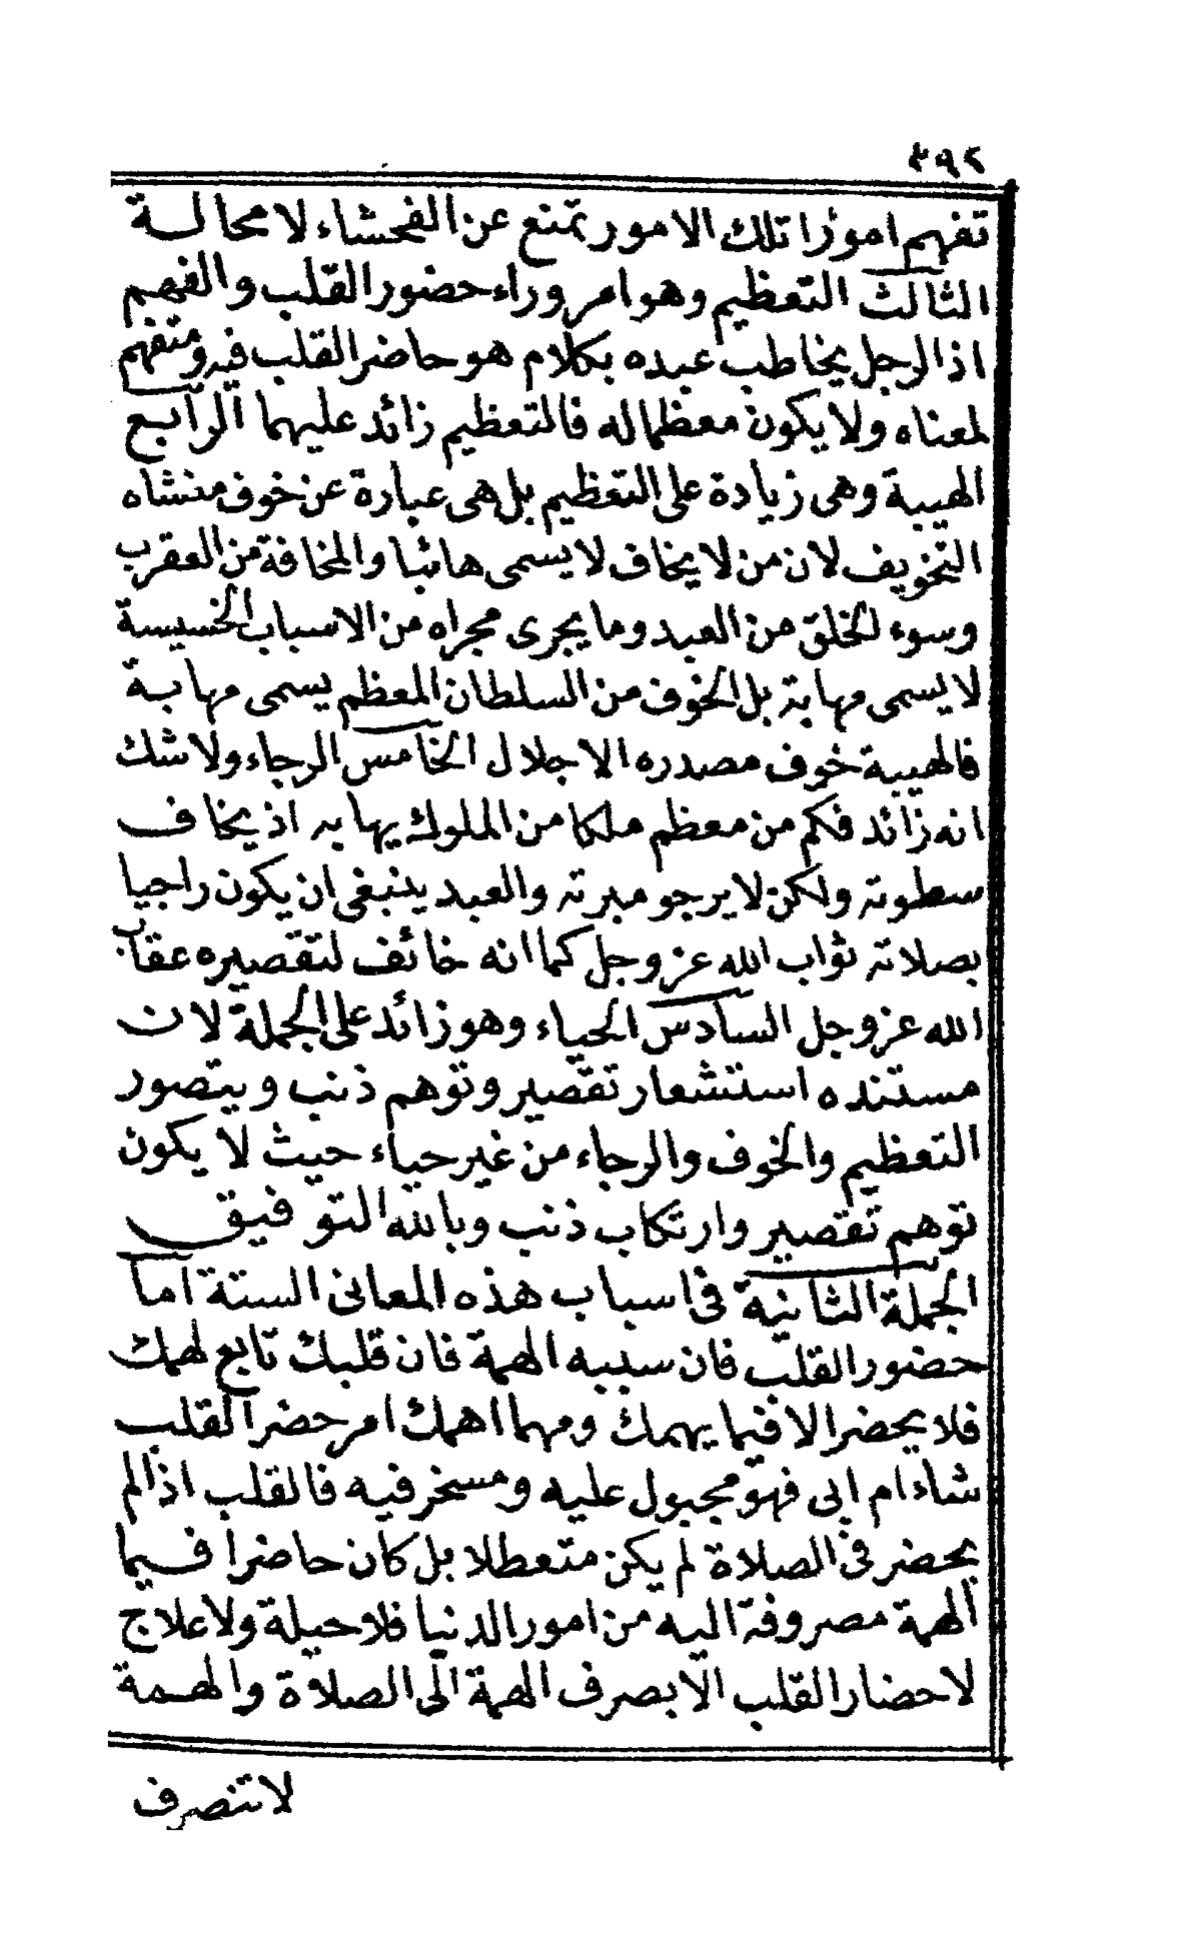 ٣٩٢
تفهم امورا تلك الامور تمنع عن الفحشاء لا محالة
الثالث التعظيم وهو امر وراء حضور القلب والفهم
اذ الرجل يخاطب عبده بكلام هو حاضر القلب فيه ومتفهم
لمعناه ولا يكون معظما له فالتعظيم زائد عليهما الرابع
الهيبة وهى زيادة على التعظيم بل هى عبارة عن خوف منشاه
التخويف لان من لا يخاف لا يسمى هائبا والمخافة من العقرب
وسوء الخلق من العبد وما يجرى مجراه من الاسباب الخسيسة
لا يسمى مهابة بل الخوف من السلطان المعظم يسمى مهابة
فالهيبة خوف مصدره الاجلال الخامس الرجاء ولا شك
انه زائد فكم من معظم ملكا من الملوك يهابه اذ يخاف
سطوته ولكن لا يرجو مبرته والعبد ينبغى ان يكون راجيا
بصلاته ثواب الله عز وجل كما انه خائف لتقصيره عقاب
الله عز وجل السادس الحياء وهو زائد على الجملة لان
مستنده استشعار تقصير وتوهم ذنب ويتصور
التعظيم والخوف والرجاء من غير حياء حيث لا يكون
توهم تقصير وارتكاب ذنب وبالله التوفيق
الجملة الثانية فى اسباب هذه المعانى الستة اما
حضور القلب فان سببه الهمة فان قلبك تابع لهمك
فلا يحضر الا فيما يهمك ومهما اهمك امر حضر القلب
شاء ام ابى فهو مجبول عليه ومسخر فيه فالقلب اذا لم
يحضر فى الصلاة لم يكن متعطلا بل كان حاضرا فيما
الهمة مصروفة اليه من امور الدنيا فلا حيلة ولا علاج
لاحضار القلب الا بصرف الهمة الى الصلاة والهمة
لا تنصرف